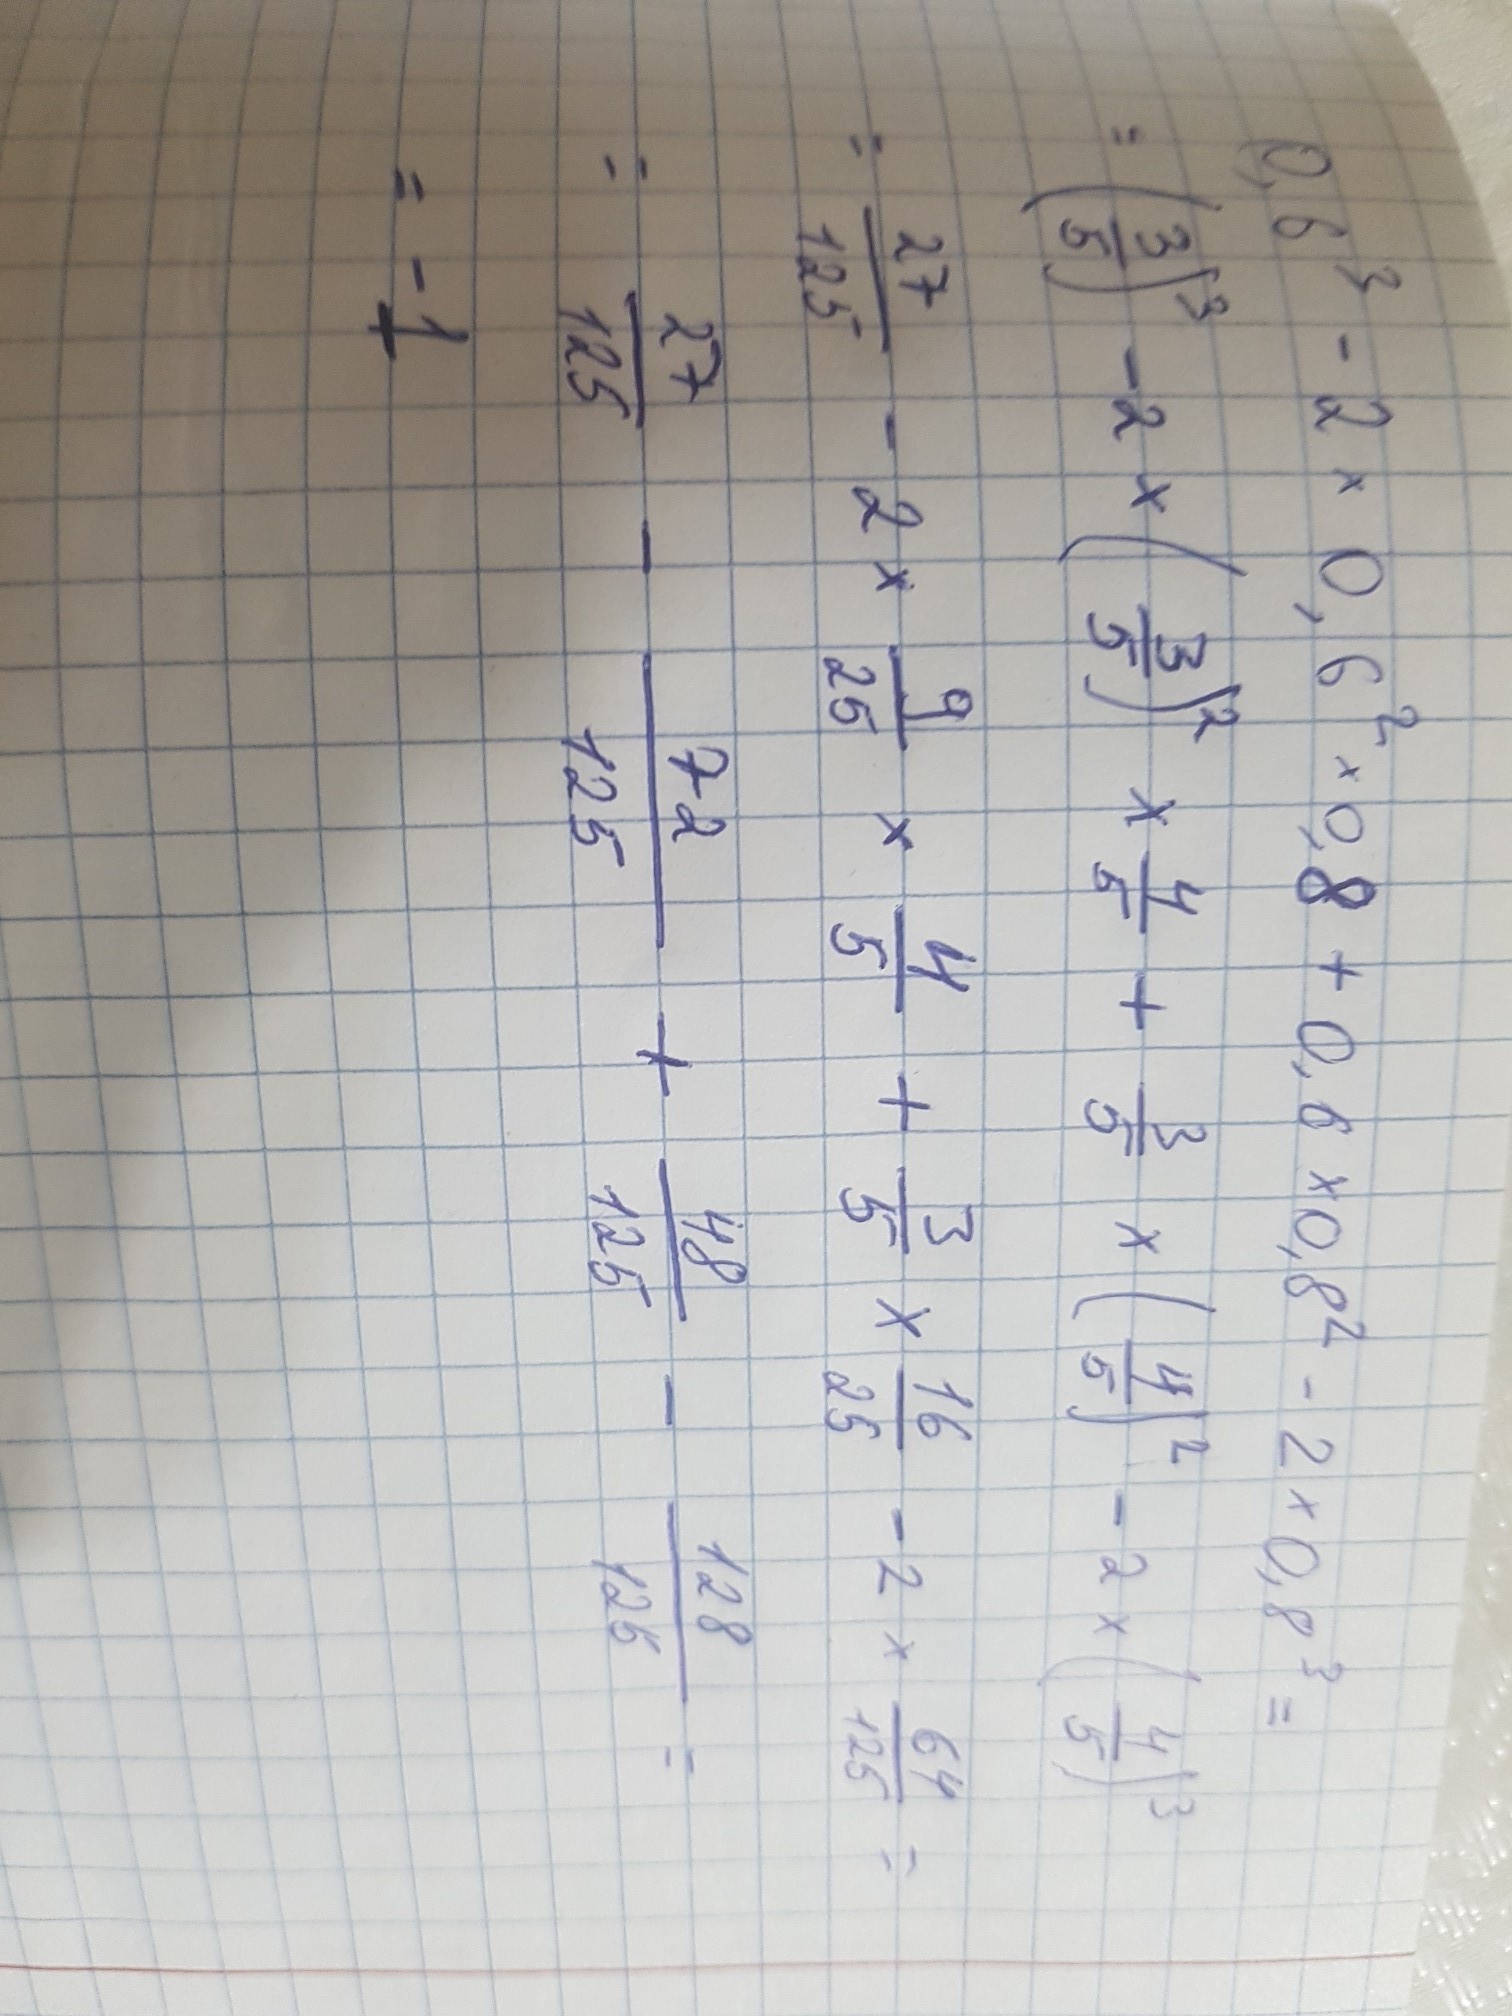 0,6³ - 2 × 0,6² × 0,8 + 0,6 × 0,8² - 2 × 0,8³ =
= (3/5)³ - 2 × (3/5)² × 4/5 + 3/5 × (4/5)² - 2 × (4/5)³
= 27/125 - 2 × 9/25 × 4/5 + 3/5 × 16/25 - 2 × 64/125 =
= 27/125 - 72/125 + 48/125 - 128/125 =
= - 1